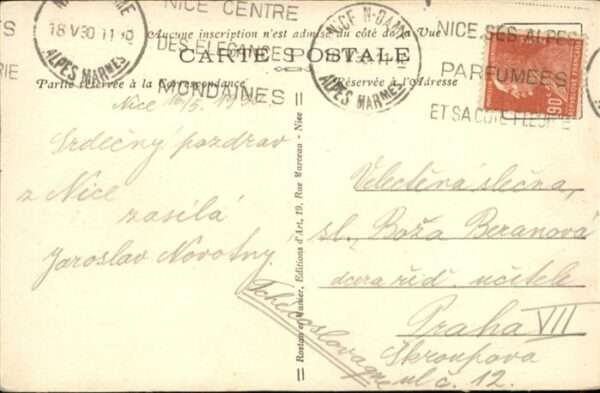 NICE CENTRE
DES ELEGANCES
MONDAINES
NICE N-DAME
18 V30 11 30
ALPES MARMES
NICE N-DAME
ALPES MARMES
NICE, SES ALPES
PARFUMEES
ET SA COTE FLEURIE
90
Aucune inscription n'est admise du côté de la Vue
CARTE POSTALE
Partie réservée à la Correspondance
Réservée à l'Adresse
Nice
Srdečný pozdrav
z Nice
zasílá
Jaroslav Novotný
Rostan et Munier, Editions d'Art, 19, Rue Marceau - Nice
Velectěná slečna,
sl. Boža Beranová
dcera říd. učitele
Praha VII
Škroupova
ul č. 12.
Tchécoslovaquie